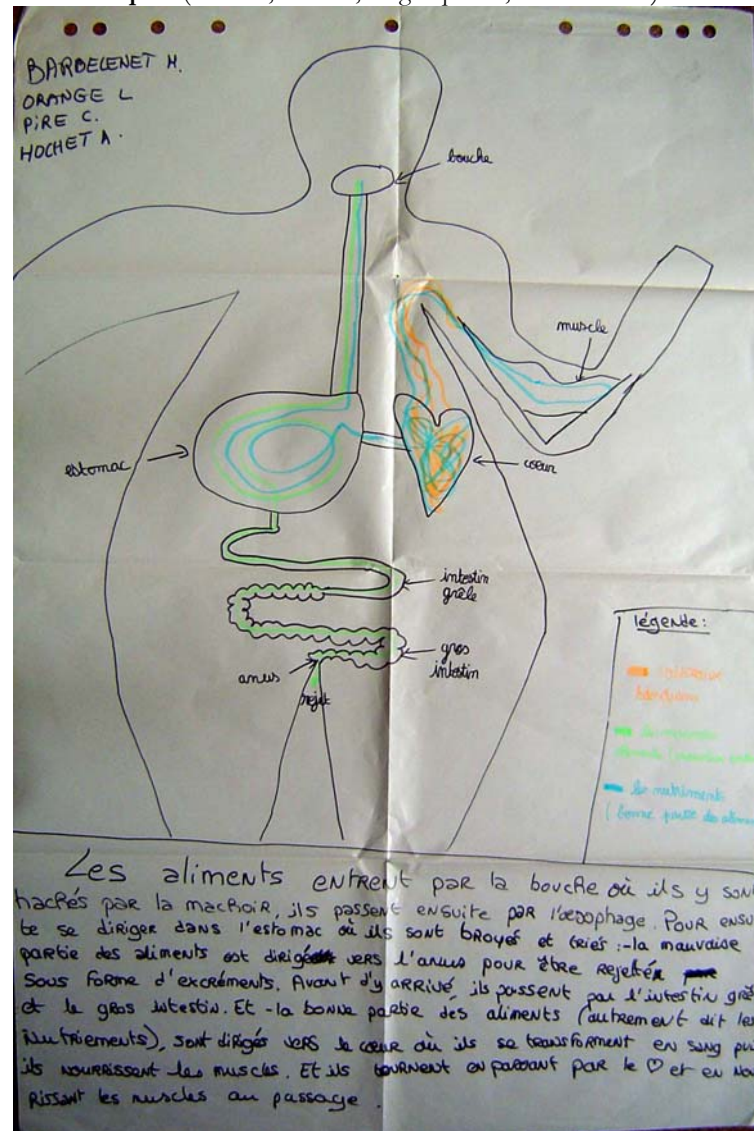 BARBELENET M.
ORANGE L
PIRE C.
HOCHET A.
bouche
muscle
estomac
coeur
intestin
grêle
gros
intestin
anus
rejet
légende:
les nutriments
( bonne partie des
Les aliments entrent par la bouche où ils y sont
hachés par la machoir, ils passent ensuite par l'œsophage. Pour ensui
te se diriger dans l'estomac où ils sont broyés et triés :-la mauvaise
partie des aliments est dirigée vers l'anus pour être rejetée
sous forme d'excréments. Avant d'y arrivé, ils passent par l'intestin grê
et le gros intestin. Et -la bonne partie des aliments (autrement dit les
Nutriements), sont dirigés vers le cœur où ils se transforment en sang pui
ils nourrissent les muscles. Et ils tournent en passant par le ♡ et en nou
rissant les muscles au passage.